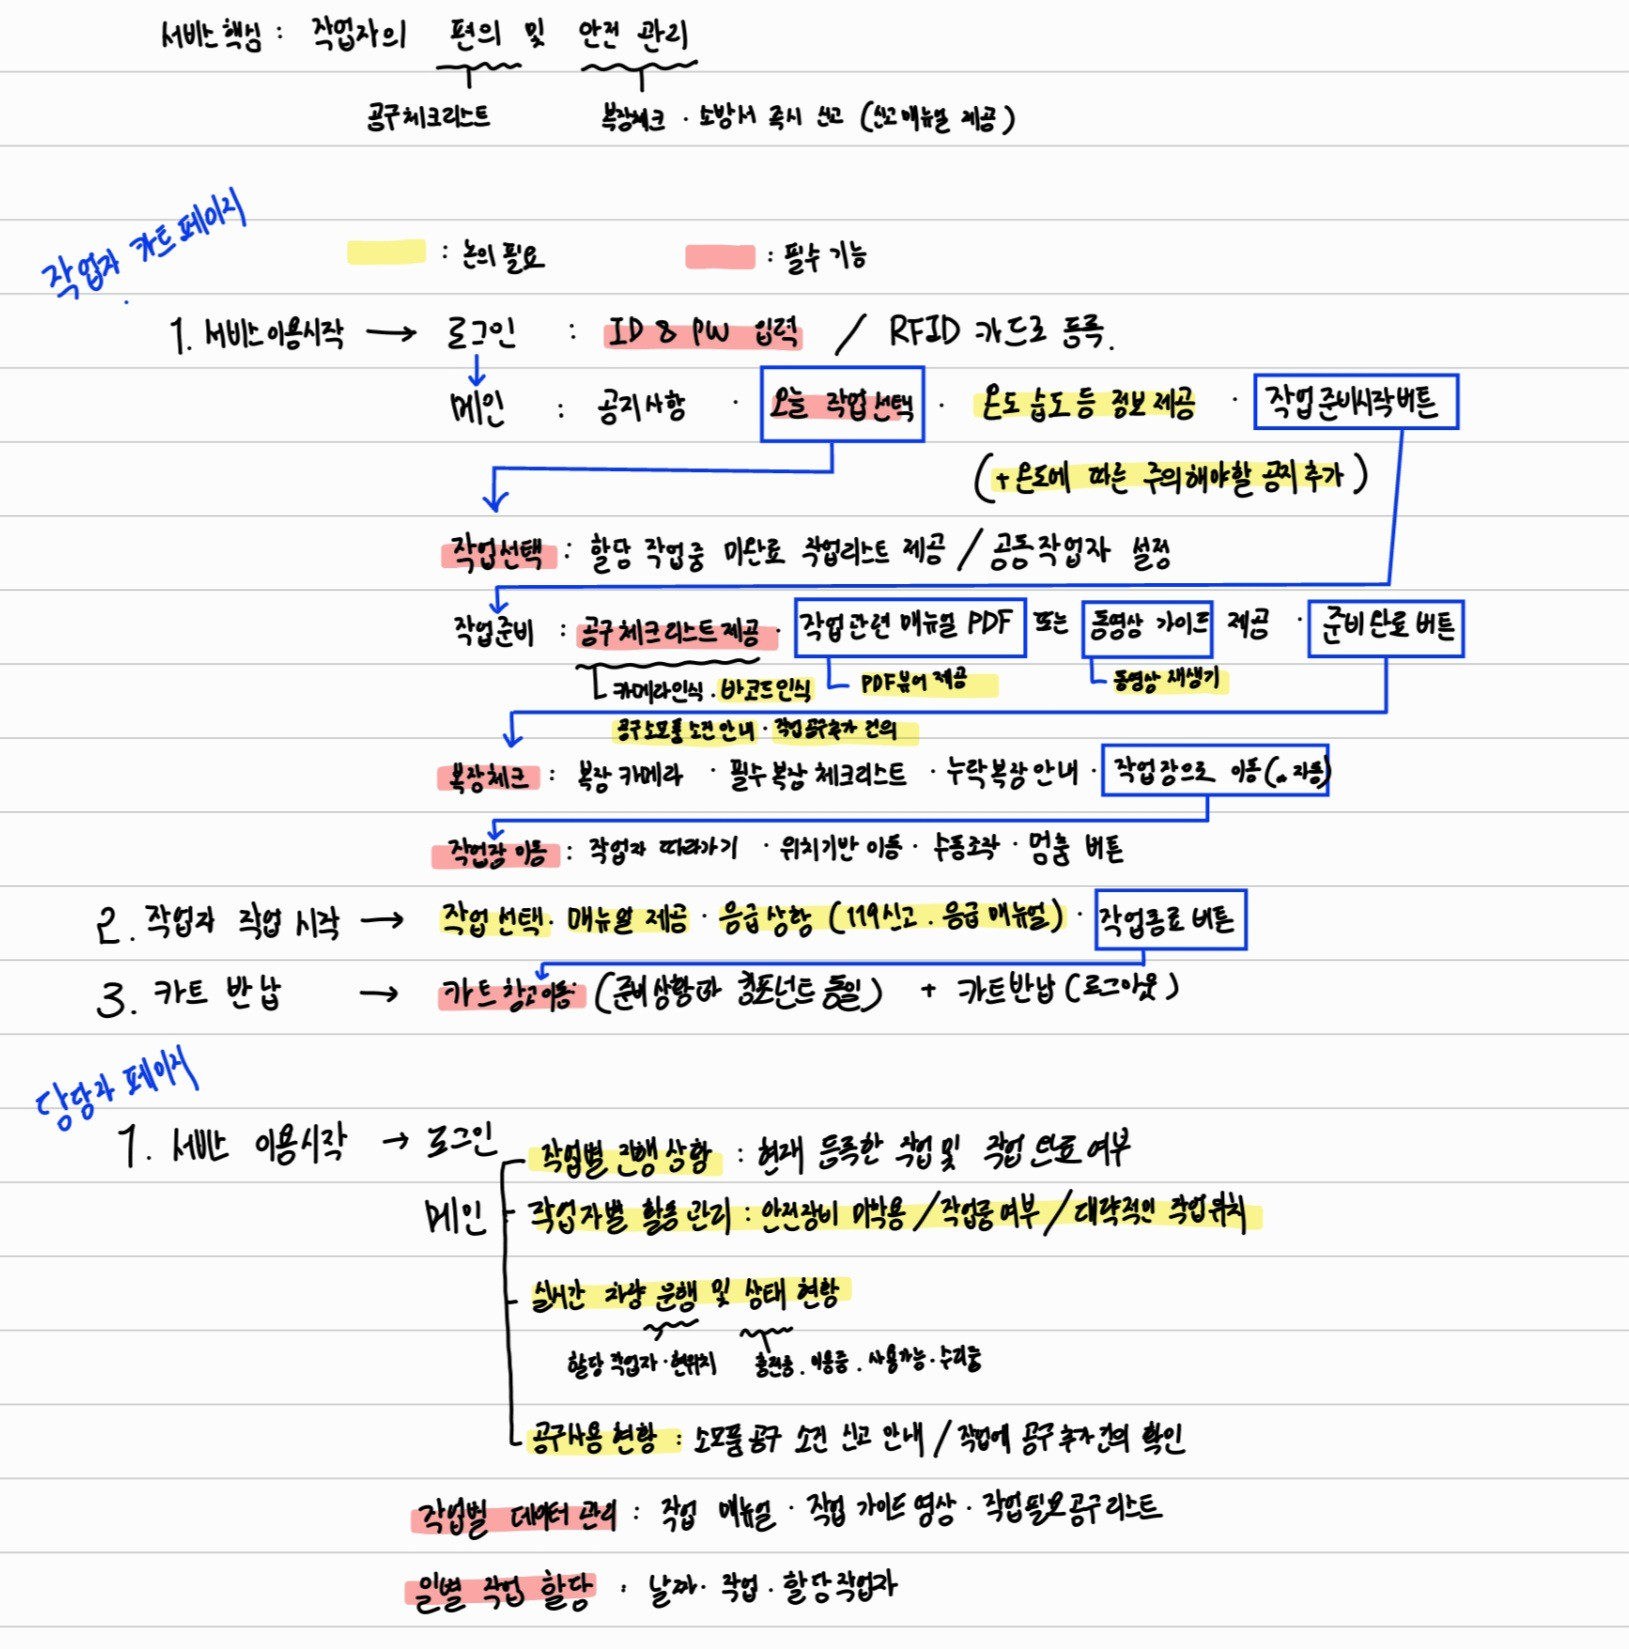 서비스 핵심 : 작업자의 편의 및 안전 관리
공구 체크리스트
복장체크 · 소방서 즉시 신고 (신고 매뉴얼 제공)
작업자 카트 페이지
: 논의 필요
: 필수 기능
1. 서비스 이용시작 → 로그인 : ID & PW 입력 / RFID 카드로 등록.
메인 : 공지사항 · 오늘 작업 선택 · 온도 습도 등 정보 제공 · 작업 준비시작 버튼
(+ 온도에 따른 주의해야할 공지 추가)
작업선택 : 할당 작업중 미완료 작업리스트 제공 / 공동작업자 설정
작업준비 : 공구 체크리스트 제공 · 작업 관련 매뉴얼 PDF 또는 동영상 가이드 제공 · 준비 완료 버튼
카메라인식 · 바코드인식
PDF뷰어 제공
동영상 재생기
공구 소모품 소진 안내 · 작업 공구 추가 건의
복장체크 : 복장 카메라 · 필수 복장 체크리스트 · 누락복장 안내 · 작업장으로 이동 ( 자동)
작업장 이동 : 작업자 따라가기 · 위치기반 이동 · 수동조작 · 멈춤 버튼
2. 작업자 작업 시작 → 작업 선택 · 매뉴얼 제공 · 응급상황 (119신고 · 응급 매뉴얼) · 작업종료 버튼
3. 카트 반납 → 카트 창고이동 (준비상황과 컴포넌트 동일) + 카트반납 (로그아웃)
담당자 페이지
1. 서비스 이용시작 → 로그인
메인
작업별 진행 상황 : 현재 등록한 작업 및 작업 완료 여부
작업자별 활동 관리 : 안전장비 미착용 / 작업중 여부 / 대략적인 작업위치
실시간 차량 운행 및 상태 현황
할당 작업자 · 현위치
충전중 · 이용중 · 사용가능 · 수리중
공구사용 현황 : 소모품 공구 소진 신고 안내 / 작업에 공구 추가 건의 확인
작업별 데이터 관리 : 작업 매뉴얼 · 작업 가이드 영상 · 작업필요공구 리스트
일별 작업 할당 : 날짜 · 작업 · 할당작업자